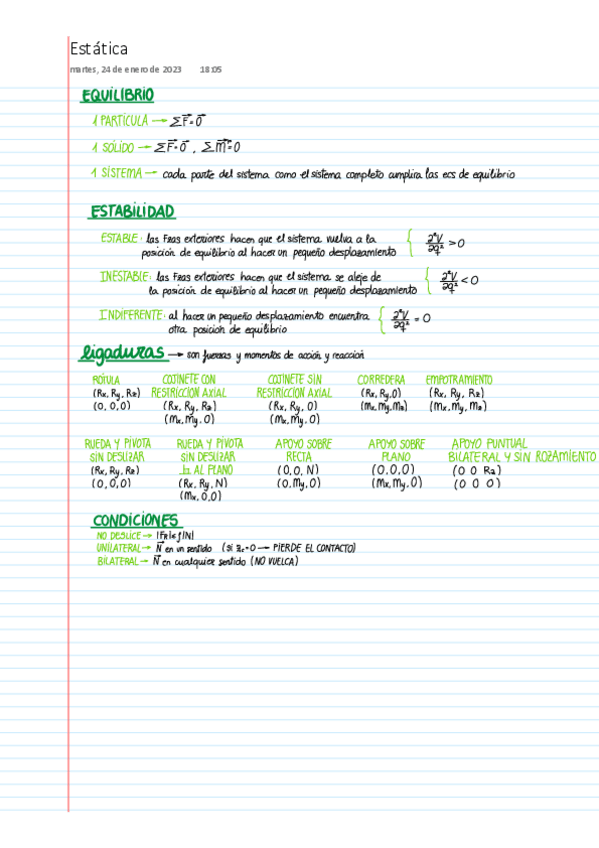 Estática
martes, 24 de enero de 2023 18:05
EQUILIBRIO
1 PARTÍCULA → ΣF⃗=0⃗
1 SÓLIDO → ΣF⃗=0⃗ , ΣM⃗=0
1 SISTEMA → cada parte del sistema como el sistema completo cumplira las ecs de equilibrio
ESTABILIDAD
ESTABLE: las Fzas exteriores hacen que el sistema vuelva a la
posición de equilibrio al hacer un pequeño desplazamiento { ∂²V/∂q² > 0
INESTABLE: las Fzas exteriores hacen que el sistema se aleje de
la posición de equilibrio al hacer un pequeño desplazamiento { ∂²V/∂q² < 0
INDIFERENTE: al hacer un pequeño desplazamiento encuentra
otra posicion de equilibrio { ∂²V/∂q² = 0
ligaduras → son fuerzas y momentos de acción y reacción
RÓTULA COJINETE CON COJINETE SIN CORREDERA EMPOTRAMIENTO
(Rx, Ry, Rz) RESTRICCIÓN AXIAL RESTRICCIÓN AXIAL (Rx, Ry, 0) (Rx, Ry, Rz)
(0, 0, 0) (Rx, Ry, Rz) (Rx, Ry, 0) (Mx, My, Mz) (Mx, My, Mz)
(Mx, My, 0) (Mx, My, 0)
RUEDA Y PIVOTA RUEDA Y PIVOTA APOYO SOBRE APOYO SOBRE APOYO PUNTUAL
SIN DESLIZAR SIN DESLIZAR RECTA PLANO BILATERAL Y SIN ROZAMIENTO
(Rx, Ry, Rz) ⊥ AL PLANO (0, 0, N) (0, 0, 0) (0 0 Rz)
(0, 0, 0) (Rx, Ry, N) (0, My, 0) (Mx, My, 0) (0 0 0)
(Mx, 0, 0)
CONDICIONES
NO DESLICE → |FR|≤f|N|
UNILATERAL → N⃗ en un sentido (si = 0 → PIERDE EL CONTACTO)
BILATERAL → N⃗ en cualquier sentido (NO VUELCA)